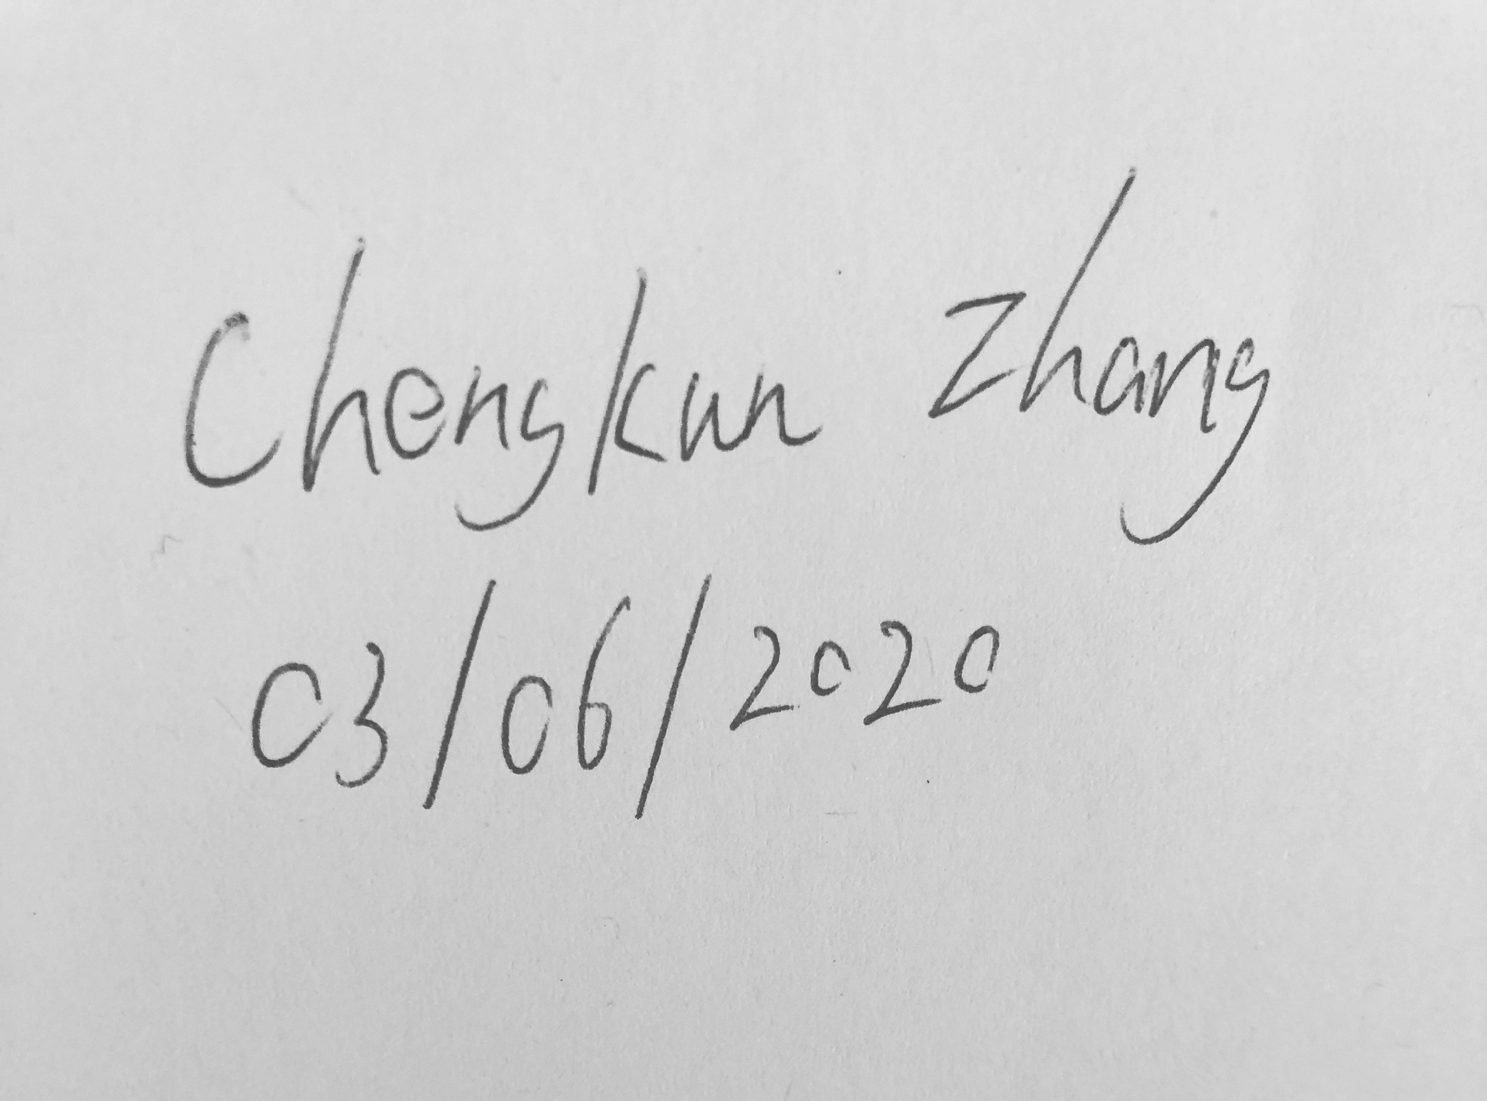 Chengkun Zhang
03/06/2020